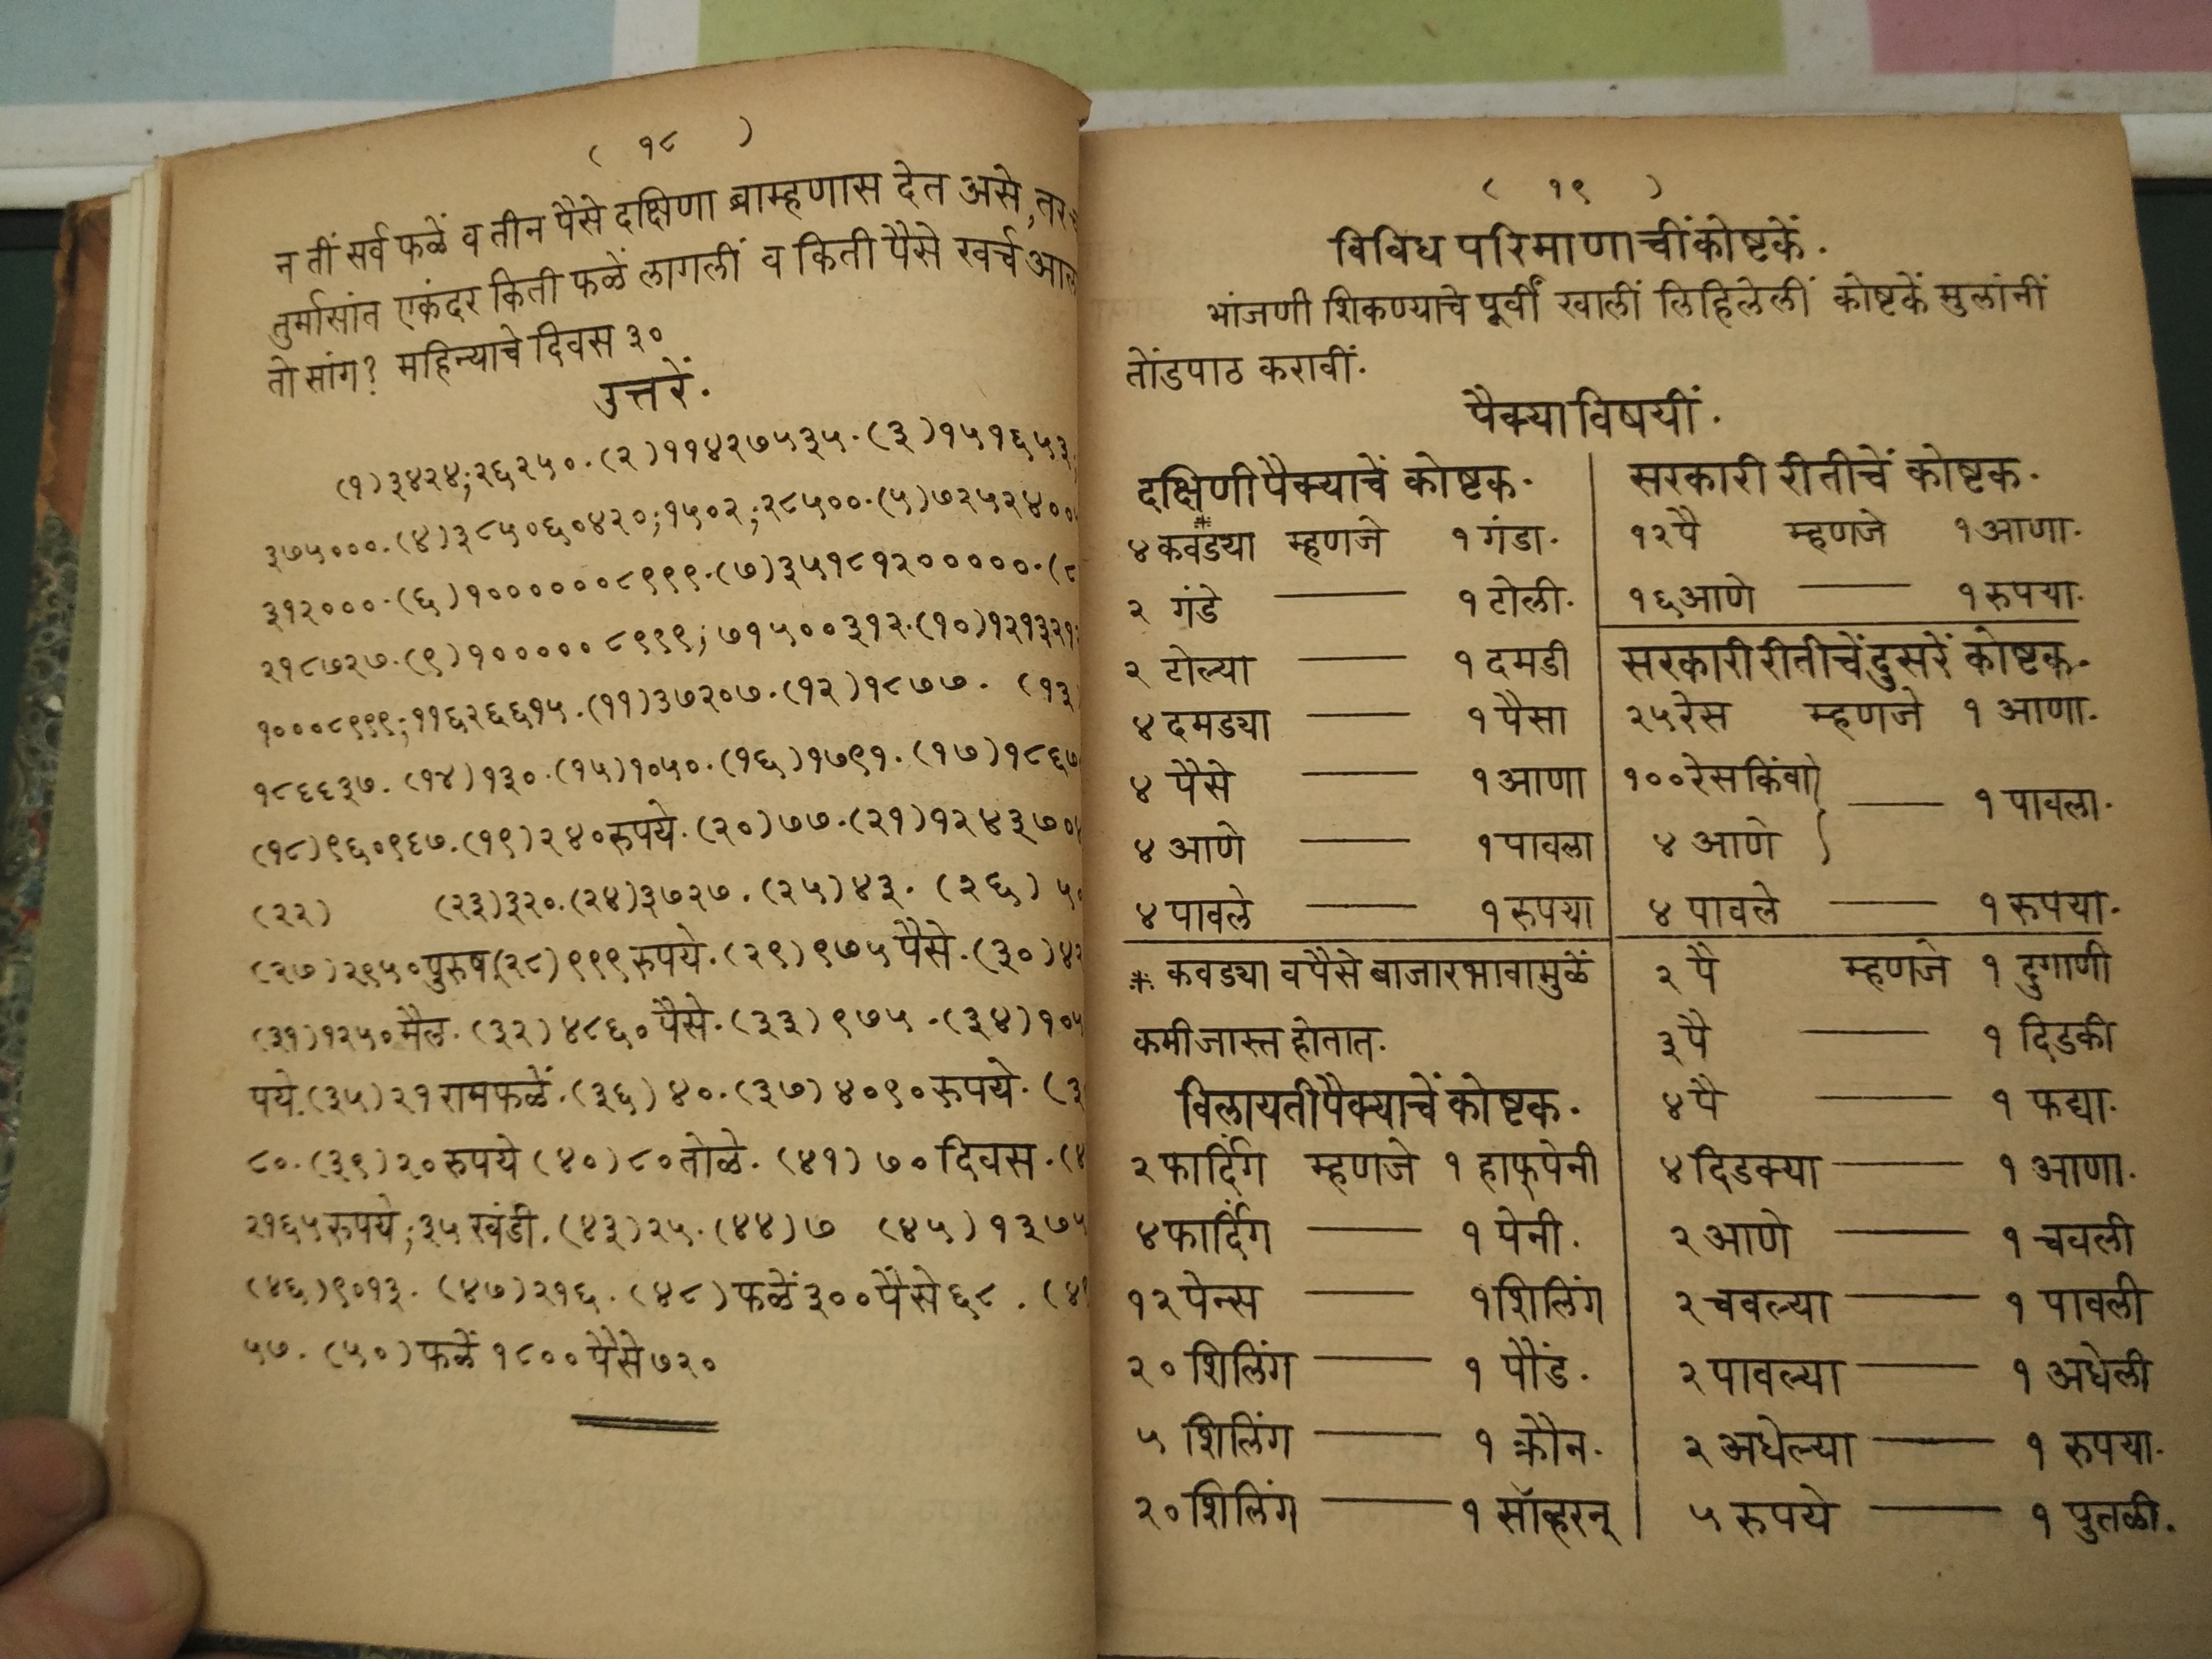 ( १८ )
न तीं सर्व फळें व तीन पैसे दक्षिणा ब्राम्हणास देत असे, तर
तुर्मासांत एकंदर किती फळें लागलीं व किती पैसे खर्च
तो सांग? महिन्याचे दिवस ३०
उत्तरें.
(१)३४२४;२६२५०.(२)११४२७५३५.(३)१५१६५३
३७५०००.(४)३८५०६०४२०;१५०२;२८५००.(५)७२५२४००
३१२०००.(६)१००००००८९९९.(७)३५१८१२०००००.(८
२१८७२७.(९)१०००००८९९९;७१५००३१२.(१०)१२१३२१
१०००८९९९;११६२६६१५.(११)३७२०७.(१२)१८७७. (१३
१८६६३७. (१४)१३०.(१५)१०५०.(१६)१७९१. (१७)१८६७
(१८)९६०९६७.(१९)२४०रुपये.(२०)७७.(२१)१२४३७०
(२२) (२३)३२०.(२४)३७२७.(२५)४३. (२६) ५
(२७)२९५०पुरुष(२८)९९९रुपये.(२९)९७५पैसे.(३०)४
(३१)१२५०मैल. (३२)४८६०पैसे.(३३)९७५.(३४)१०
पये.(३५)२१रामफळें.(३६)४०.(३७)४०९०रुपये. (३
८०.(३९)२०रुपये (४०)८०तोळे. (४१) ७०दिवस.(४
२१६५रुपये;३५खंडी.(४३)२५.(४४)७ (४५)१३७५
(४६)९०१३. (४७)२१६. (४८)फळें३००पैसे६८. (४
५७. (५०)फळें१८००पैसे७२०
( १९ )
विविध परिमाणाचीं कोष्टकें.
भांजणी शिकण्याचे पूर्वीं खालीं लिहिलेलीं कोष्टकें मुलांनीं
तोंडपाठ करावीं.
पैक्याविषयीं.
दक्षिणी पैक्याचें कोष्टक.
४ कवड्या* म्हणजे १ गंडा.
२ गंडे —— १ टोली.
२ टोल्या —— १ दमडी
४ दमड्या —— १ पैसा
४ पैसे —— १ आणा
४ आणे —— १ पावला
४ पावले —— १ रुपया
* कवड्या व पैसे बाजारभावामुळें
कमी जास्त होतात.
विलायती पैक्याचें कोष्टक.
२ फार्दिंग म्हणजे १ हाफ्पेनी
४ फार्दिंग —— १ पेनी.
१२ पेन्स —— १ शिलिंग
२० शिलिंग —— १ पौंड.
५ शिलिंग —— १ क्रौन.
२० शिलिंग —— १ सॉव्हरन्
सरकारी रीतीचें कोष्टक.
१२ पै म्हणजे १ आणा.
१६ आणे —— १ रुपया.
सरकारी रीतीचें दुसरें कोष्टक.
२५ रेस म्हणजे १ आणा.
१०० रेस किंवा
४ आणे } —— १ पावला.
४ पावले —— १ रुपया.
२ पै म्हणजे १ दुगाणी
३ पै —— १ दिडकी
४ पै —— १ फद्या.
४ दिडक्या —— १ आणा.
२ आणे —— १ चवली
२ चवल्या —— १ पावली
२ पावल्या —— १ अधेली
२ अधेल्या —— १ रुपया.
५ रुपये —— १ पुतळी.